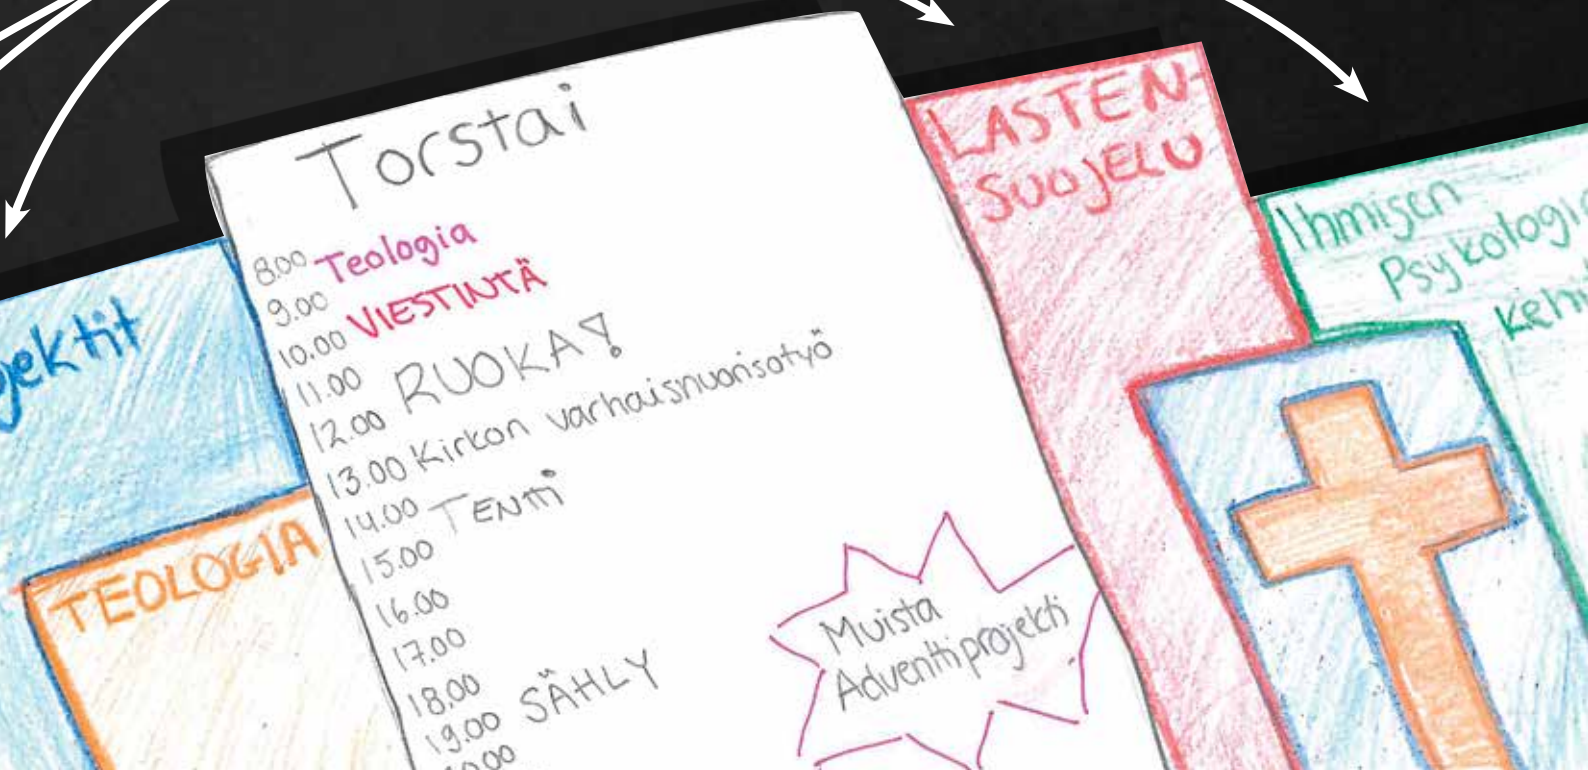 Torstai
8.00 Teologia
9.00
10.00 VIESTINTÄ
11.00
12.00 RUOKA!
13.00 Kirkon varhaisnuorisotyö
14.00 TENTTI
15.00
16.00
17.00
18.00
19.00 SÄHLY
Muista
Adventtiprojekti
TEOLOGIA
LASTEN-
SUOJELU
Ihmisen